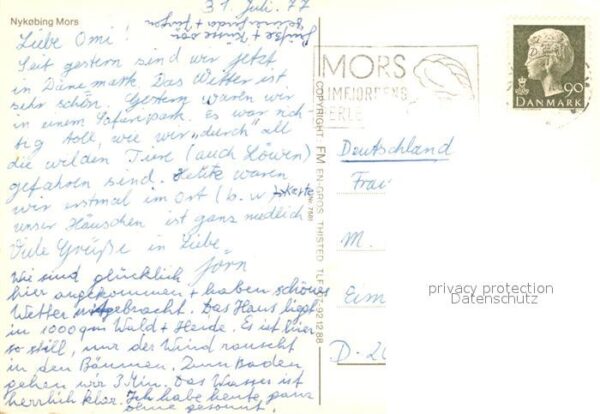 Nykøbing Mors
31. Juli. 77
Grüße + Küsse von
Liebe Omi!
Seit gestern sind wir jetzt
in Dänemark. Das Wetter ist
sehr schön. Gestern waren wir
in einem Safaripark. Es war rich
tig toll, wie wir „durch" all
die wilden Tiere (auch Löwen)
gefahren sind. Heute waren
wir erstmal im Ort (b. w) Karte
unser Häuschen ist ganz niedlich
Viele Grüße in Liebe
Jörn
Wir sind glücklich
hier angekommen + haben schönes
Wetter mitgebracht. Das Haus liegt
in 1000 qm Wald + Heide. Es ist hier
so still, nur der Wind rauscht
in den Bäumen. Zum Baden
gehen wir 3 Min. Das Wasser ist
herrlich klar. Ich habe heute ganz
ohne gesonnt.
COPYRIGHT: FM EN-GROS, THISTED
MORS
LIMFJORDENS
PERLE
90
DANMARK
Deutschland
Frau
M.
D-20
privacy protection
Datenschutz